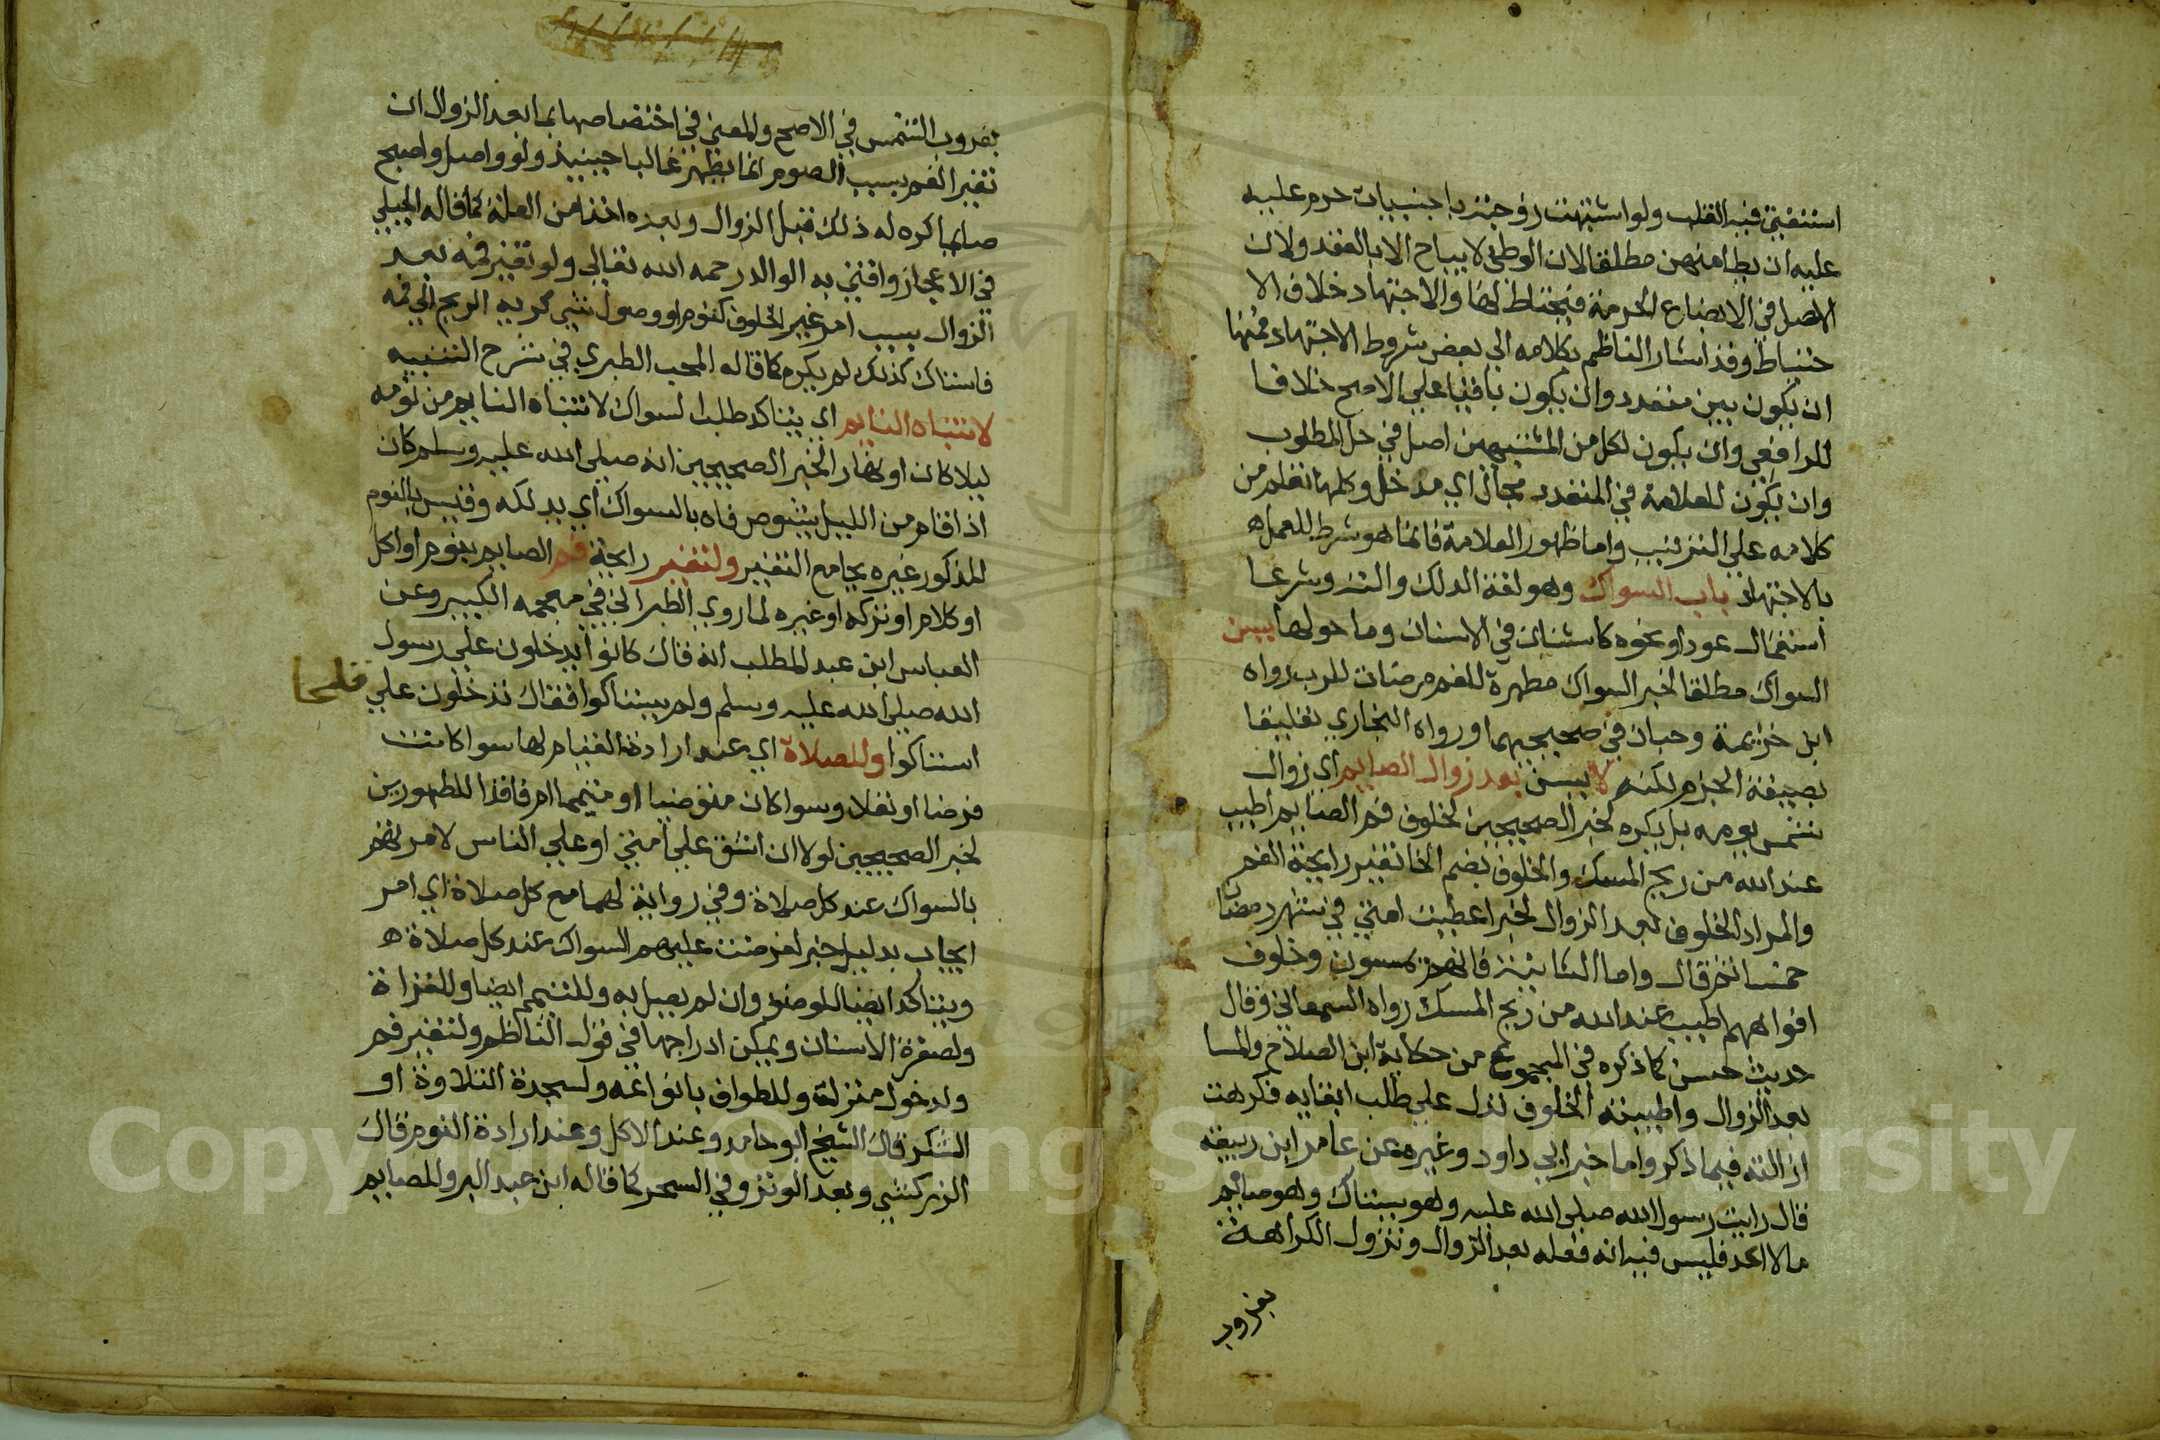 استفتي فيه القلب ولو اشتبهت زوجته باجنبيات حرم عليه
عليه ان يطا منهن مطلقا لان الوطئ لا يباح الا بالعقد ولان
الاصل في الابضاع الحرمة فيحتاط لها والاجتهاد خلاف الا
حتياط وقد اشار الناظم بكلامه الي بعض شروط الاجتهاد فمنها
ان يكون بين متعدد وان يكون باقيا علي الاصح خلافا
للرافعي وان يكون لكل من المشتبهين اصل في حل المطلوب
وان يكون للعلامة في المتعدد مجال اي مدخل وكلها تعلم من
كلامه علي الترتيب واما ظهور العلامة فانما هو شرط للعمل
بالاجتهاد باب السواك وهو لغة الدلك والته وشرعا
استعمال عود او نحوه كاشنان في الاسنان وما حولها يسن
السواك مطلقا لخبر السواك مطهرة للفم مرضات للرب رواه
ابن خزيمة وحبان في صحيحيهما ورواه البخاري تعليقا
بصيغة الجزم لكنه لا يسن بعد زوال الصايم اي زوال
شمس يومه بل يكره لخبر الصحيحين لخلوف فم الصايم اطيب
عند الله من ريح المسك والخلوف بضم الخا تغير رايحة الفم
والمراد الخلوف بعد الزوال لخبر اعطيت امتي في شهر رمضان
خمسا ثم قال واما الثانية فانهم يمسون وخلوف
افواههم اطيب عند الله من ريح المسك رواه السمعاني وقال
حديث حسن كما ذكره في المجموع من حكاية ابن الصلاح والمسا
بعد الزوال واطيبية الخلوف تدل علي طلب ابقايه فكرهت
ازالته فيما ذكر واما خبر ابي داود وغيره عن عامر ابن ربيعة
قال رايت رسول الله صلي الله عليه وهو يستاك وهو صايم
مالا اعد فليس فيه انه فعله بعد الزوال وتزول الكراهة
بغروب
بغروب الشمس في الاصح والمعني في اختصاصها بما بعد الزوال ان
تغير الفم بسبب الصوم انما يظهر غالبا حينيذ ولو واصل واصبح
صايما كره له ذلك قبل الزوال وبعده اخذا من العلة كما قاله الجيلي
في الاعجاز وافتي به الوالد رحمه الله تعالي ولو تغير فمه بعد
الزوال بسبب امر غير الخلوف كنوم او وصول شي كريه الريح الي فمه
فاستاك كذلك لم يكره كما قاله المحب الطبري في شرح التنبيه
لانتباه النايم اي يتاكد طلب السواك لانتباه النايم من نومه
ليلا كان او نهار الخبر الصحيحين انه صلي الله عليه وسلم كان
اذا قام من الليل يشوص فاه بالسواك اي يدلكه وقيس بالنوم
المذكور غيره بجامع التغير ولتغير رايحة فم الصايم بنوم او اكل
او كلام او تركه او غيره لما روي الطبراني في معجمه الكبير وعن
العباس ابن عبد المطلب انه قال كانوا يدخلون علي رسول
الله صلي الله عليه وسلم ولم يستاكوا فقال تدخلون علي قلحا
استاكوا وللصلاة اي عند ارادة القيام لها سوا كانت
فرضا او نفلا وسوا كان متوضيا او متيمما ام فاقد الطهورين
لخبر الصحيحين لولا ان اشق علي امتي او علي الناس لامرتهم
بالسواك عند كل صلاة وفي رواية لهما مع كل صلاة اي امر
ايجاب بدليل خبر لفرضت عليهم السواك عند كل صلاة
ويتاكد ايضا للوضو وان لم يصل به وللتيمم ايضا وللقراة
ولصفرة الاسنان ويمكن ادراجها في قول الناظم ولتغير فم
ولدخول منزلة وللطواف بانواعه ولسجدة التلاوة او
الشكر قال الشيخ ابو حامد وعند الاكل وعند ارادة النوم قال
الزركشي وبعد الوتر وفي السحر كما قاله ابن عبد البر وللصايم
Copyright © King Saud University